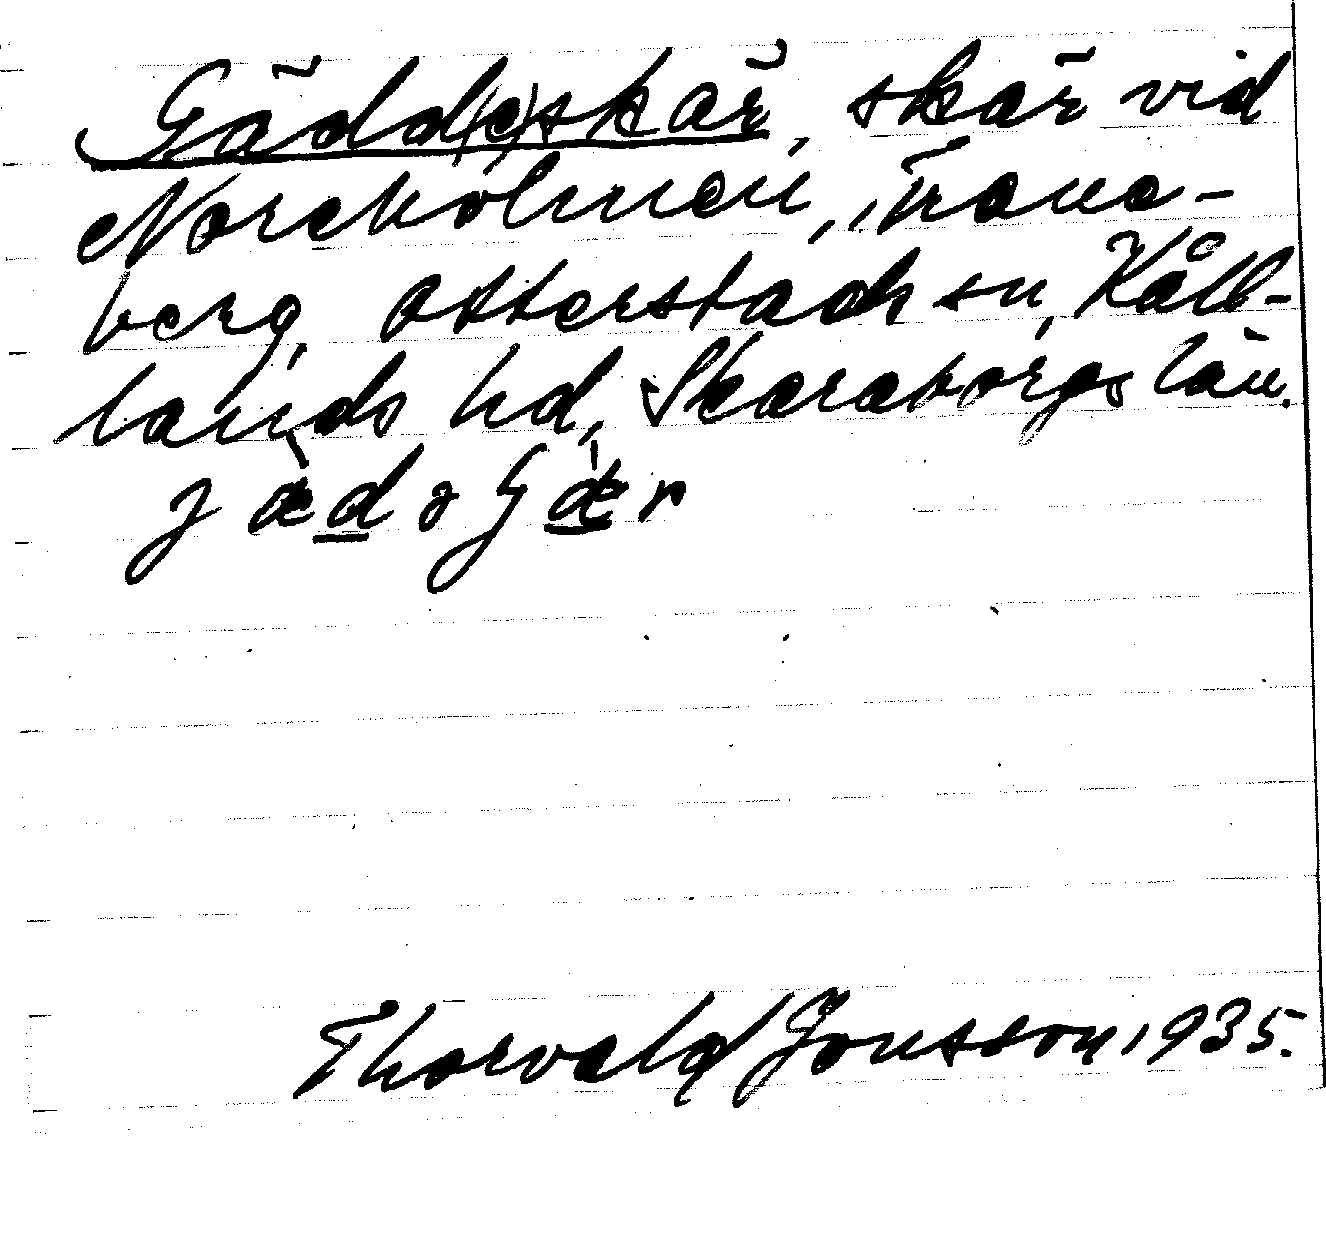 Gädd(e)skär, skär vid
Noreholmen, Trane-
berg, Otterstads sn, Kål-
lands hd, Skaraborgs län.
Thorvald Jonsson, 1935.